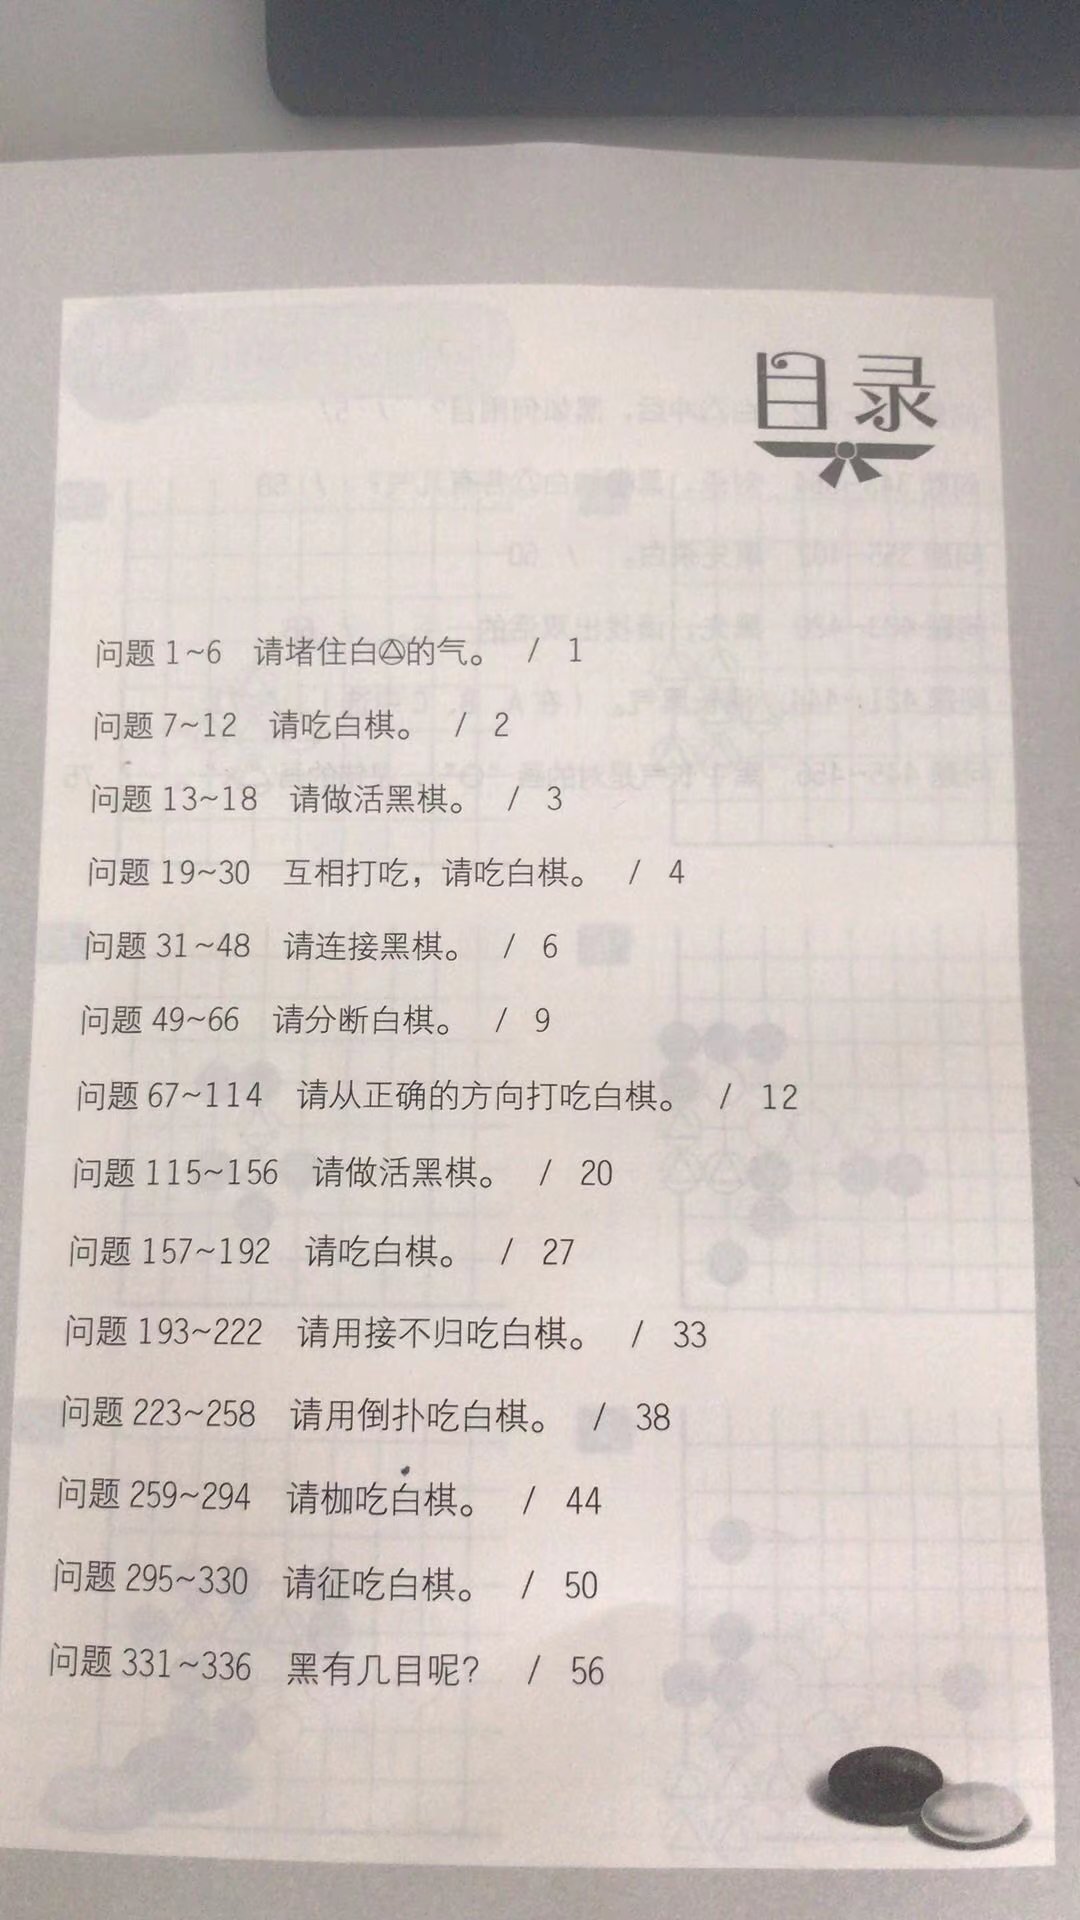 目录
问题 1~6 请堵住白△的气。 / 1
问题 7~12 请吃白棋。 / 2
问题 13~18 请做活黑棋。 / 3
问题 19~30 互相打吃，请吃白棋。 / 4
问题 31~48 请连接黑棋。 / 6
问题 49~66 请分断白棋。 / 9
问题 67~114 请从正确的方向打吃白棋。 / 12
问题 115~156 请做活黑棋。 / 20
问题 157~192 请吃白棋。 / 27
问题 193~222 请用接不归吃白棋。 / 33
问题 223~258 请用倒扑吃白棋。 / 38
问题 259~294 请枷吃白棋。 / 44
问题 295~330 请征吃白棋。 / 50
问题 331~336 黑有几目呢？ / 56